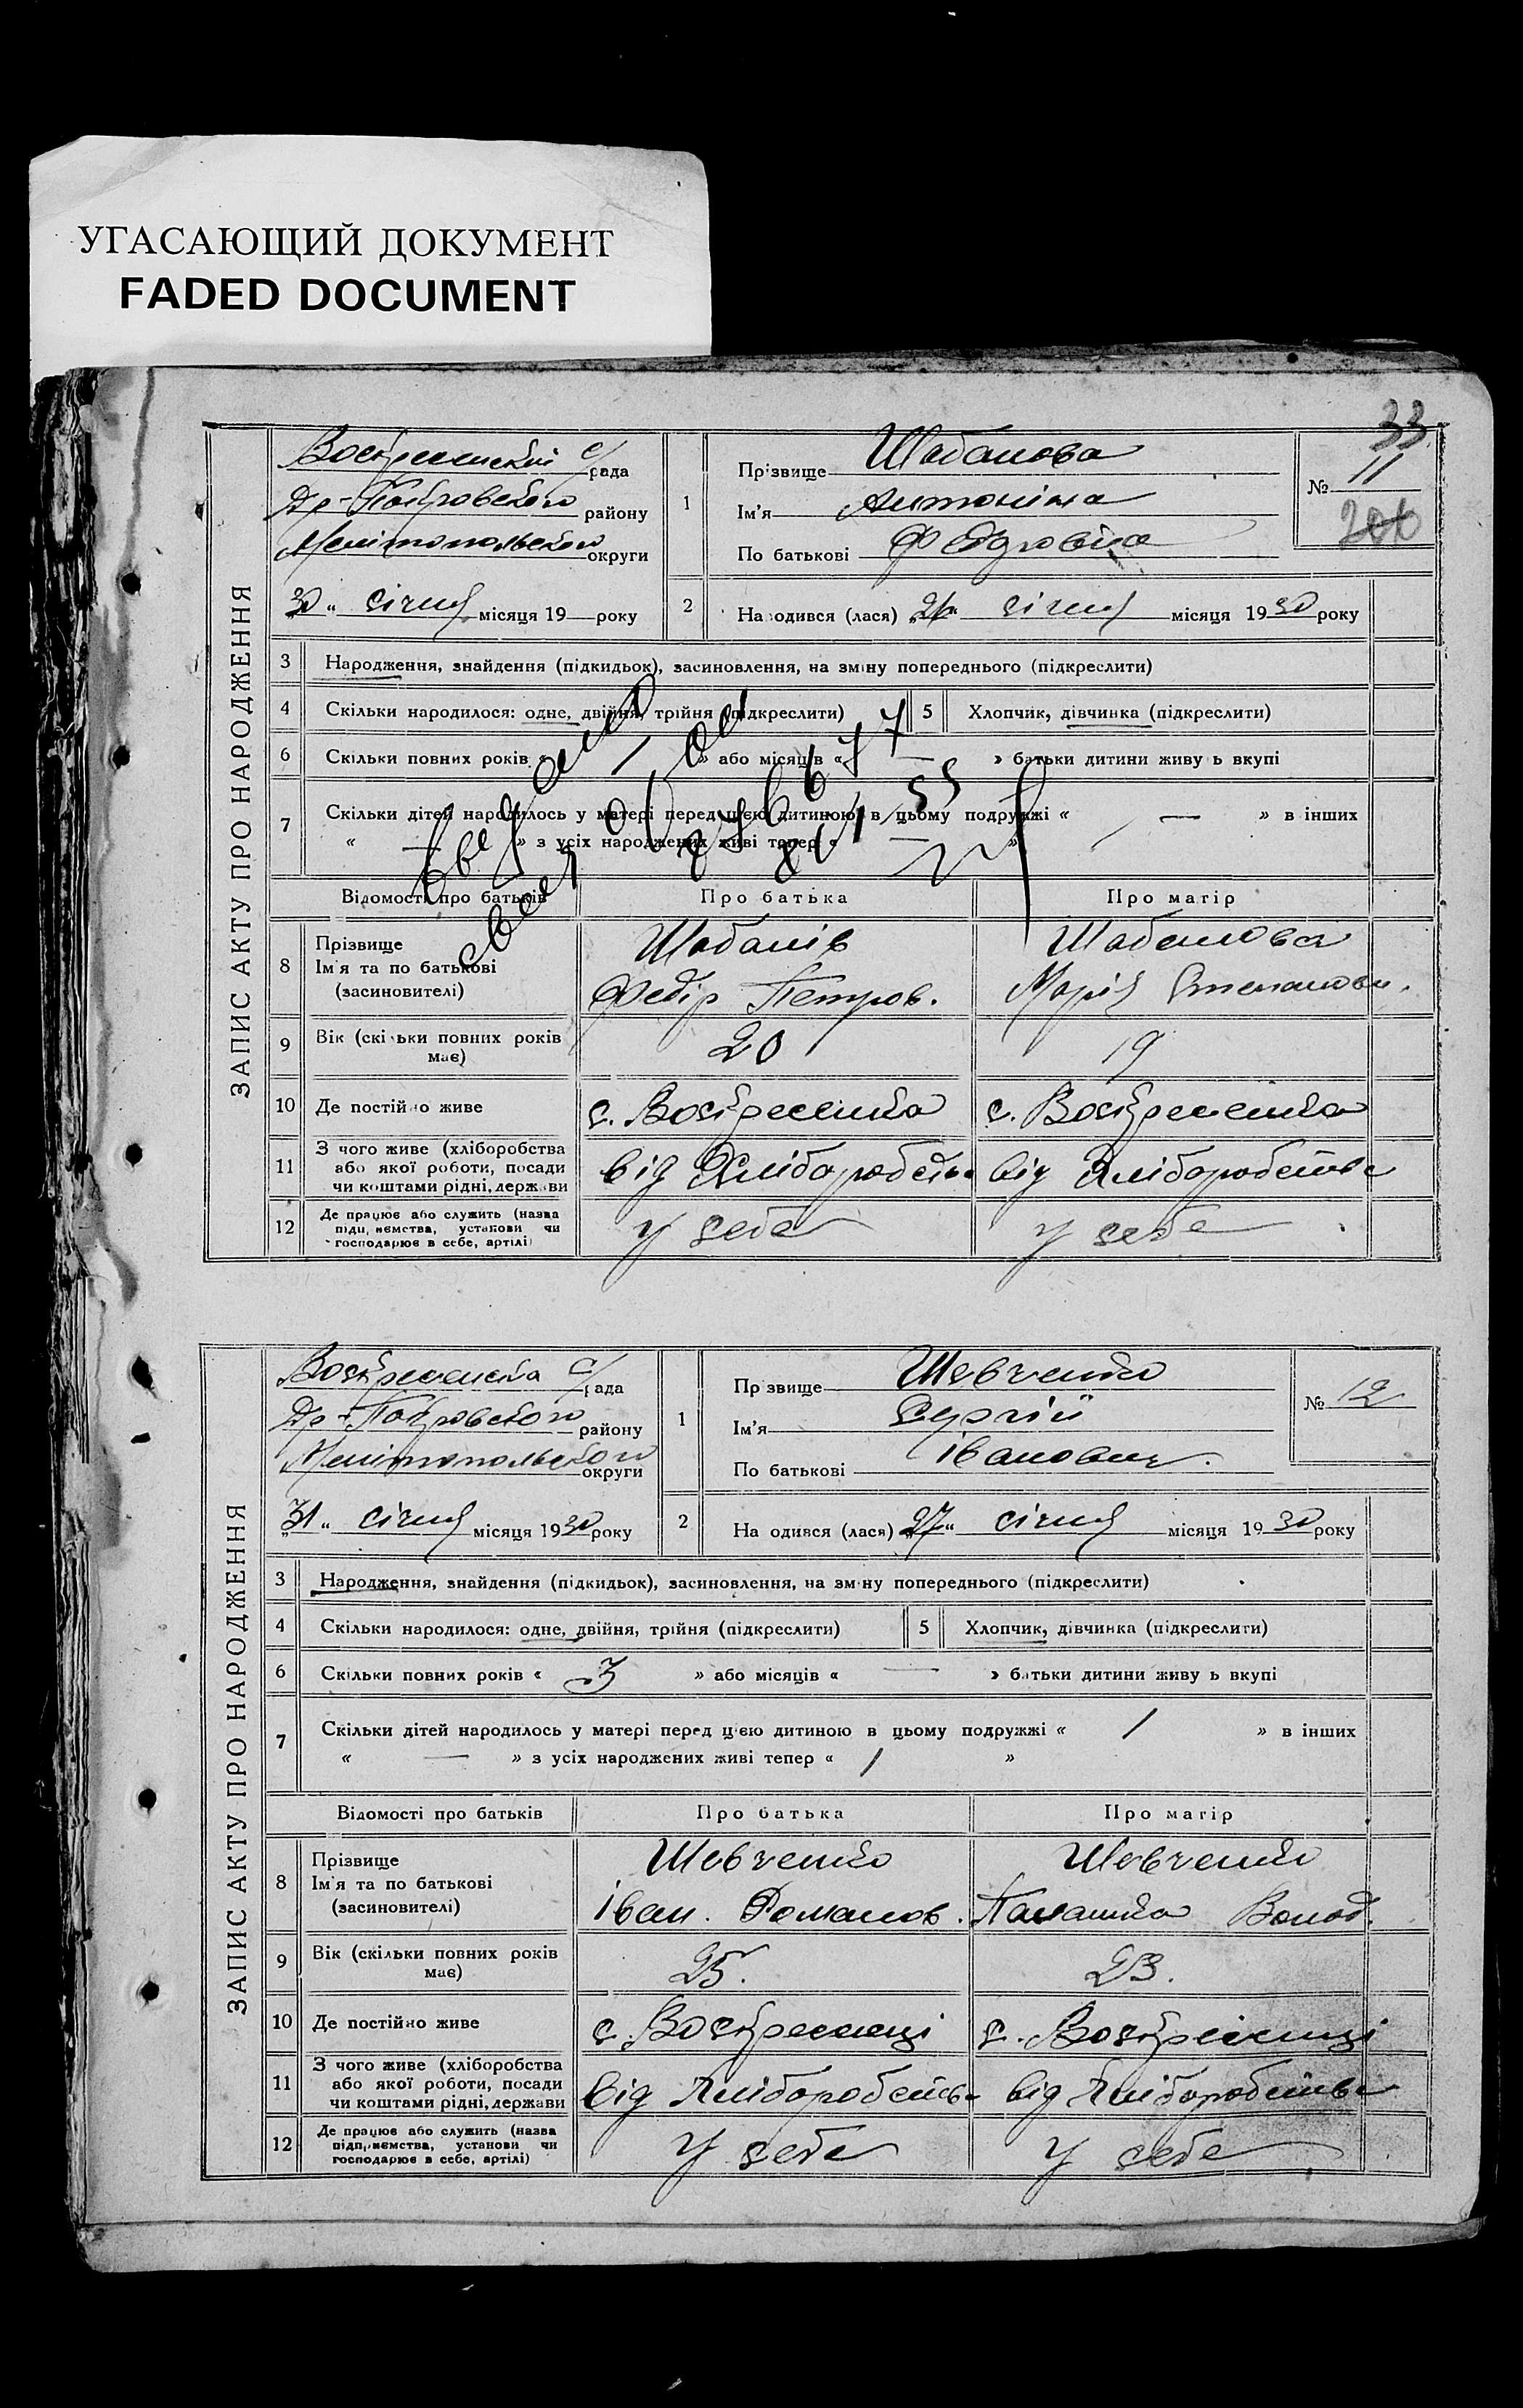 УГАСАЮЩИЙ ДОКУМЕНТ
FADED DOCUMENT
33
ЗАПИС АКТУ ПРО НАРОДЖЕННЯ
Воскресенський с/рада
Др-Покровського району
Мелітопольського округи
30 " січня місяця 19 року
1
Прізвище Шабанова
Ім'я Антоніна
По батькові Федоровіна
№ 11
206
2
Народився (лася) січня місяця 1930 року
3 Народження, знайдення (підкидьок), засиновлення, на зміну попереднього (підкреслити)
4 Скільки народилося: одне, двійня, трійня (підкреслити) 5 Хлопчик, дівчинка (підкреслити)
6 Скільки повних років « 1 » або місяців « — » батьки дитини живуть вкупі
7 Скільки дітей народилось у матері перед цією дитиною в цьому подружжі « — » в інших
« — » з усіх народжених живі тепер « — »
Відомості про батьків Про батька Про матір
8 Прізвище Шабанів Шабанова
Ім'я та по батькові Федір Петров. Марія Степановн.
(засиновителі)
9 Вік (скільки повних років має) 20 19
10 Де постійно живе с. Воскресенка с. Воскресенка
11 З чого живе (хліборобства або якої роботи, посади чи коштами рідні, держави від Хліборобств від Хліборобства
12 Де працює або служить (назва підприємства, установи чи господарює в себе, артілі) у себе у себе
ЗАПИС АКТУ ПРО НАРОДЖЕННЯ
Воскресенська с/рада
Др-Покровського району
Мелітопольського округи
„31" січня місяця 1930 року
1
Прізвище Шевченко
Ім'я Сергій
По батькові Іванович.
№ 12
2
Народився (лася) „27" січня місяця 1930 року
3 Народження, знайдення (підкидьок), засиновлення, на зміну попереднього (підкреслити)
4 Скільки народилося: одне, двійня, трійня (підкреслити) 5 Хлопчик, дівчинка (підкреслити)
6 Скільки повних років « 3 » або місяців « — » батьки дитини живуть вкупі
7 Скільки дітей народилось у матері перед цією дитиною в цьому подружжі « 1 » в інших
« — » з усіх народжених живі тепер « 1 »
Відомості про батьків Про батька Про матір
8 Прізвище Шевченко Шевченко
Ім'я та по батькові Іван. Романов. Палашка Волод.
(засиновителі)
9 Вік (скільки повних років має) 25. 23.
10 Де постійно живе с. Воскресенці с. Воскресенці
11 З чого живе (хліборобства або якої роботи, посади чи коштами рідні, держави від Хліборобств від Хліборобства
12 Де працює або служить (назва підприємства, установи чи господарює в себе, артілі) у себе у себе